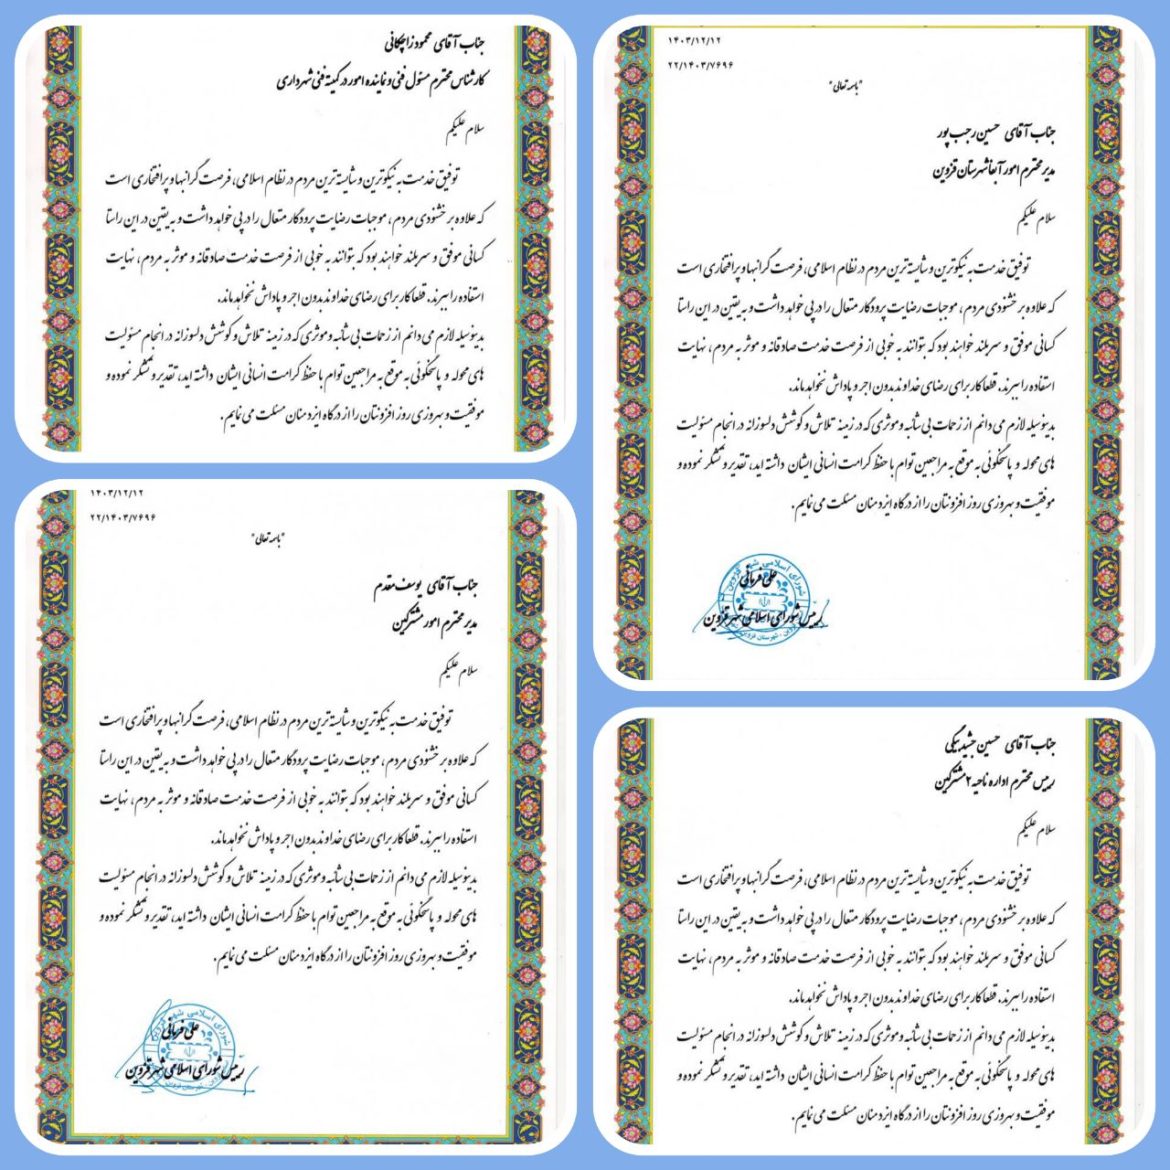 جناب آقای محمود زاچکانی
کارشناس محترم مسئول فنی و نماینده امور در کمیته فنی شهرداری
سلام علیکم
توفیق خدمت به نیکوترین و شایسته ترین مردم در نظام اسلامی، فرصت گرانبها و پر افتخاری است
که علاوه بر خشنودی مردم، موجبات رضایت پرودگار متعال را در پی خواهد داشت و به یقین در این راستا
کسانی موفق و سربلند خواهند بود که بتوانند به خوبی از فرصت خدمت صادقانه و موثر به مردم، نهایت
استفاده را ببرند. قطعا کار برای رضای خداوند بدون اجر و پاداش نخواهد ماند.
بدینوسیله لازم می دانم از زحمات بی شائبه و موثری که در زمینه تلاش و کوشش دلسوزانه در انجام مسئولیت
های محوله و پاسخگوئی به موقع به مراجعین توام با حفظ کرامت انسانی ایشان داشته اید، تقدیر و تشکر نموده و
موفقیت و بهروزی روز افزونتان را از درگاه ایزد منان مسئلت می نمایم.
۱۴۰۳/۱۲/۱۲
۲۲/۱۴۰۳/۷۶۹۶
"باسمه تعالی"
جناب آقای حسین رجب پور
مدیر محترم امور آبفا شهرستان قزوین
سلام علیکم
توفیق خدمت به نیکوترین و شایسته ترین مردم در نظام اسلامی، فرصت گرانبها و پر افتخاری است
که علاوه بر خشنودی مردم، موجبات رضایت پرودگار متعال را در پی خواهد داشت و به یقین در این راستا
کسانی موفق و سربلند خواهند بود که بتوانند به خوبی از فرصت خدمت صادقانه و موثر به مردم، نهایت
استفاده را ببرند. قطعا کار برای رضای خداوند بدون اجر و پاداش نخواهد ماند.
بدینوسیله لازم می دانم از زحمات بی شائبه و موثری که در زمینه تلاش و کوشش دلسوزانه در انجام مسئولیت
های محوله و پاسخگوئی به موقع به مراجعین توام با حفظ کرامت انسانی ایشان داشته اید، تقدیر و تشکر نموده و
موفقیت و بهروزی روز افزونتان را از درگاه ایزد منان مسئلت می نمایم.
علی فرمانی
رئیس شورای اسلامی شهر قزوین
۱۴۰۳/۱۲/۱۲
۲۲/۱۴۰۳/۷۶۹۶
"باسمه تعالی"
جناب آقای یوسف مقدم
مدیر محترم امور مشترکین
سلام علیکم
توفیق خدمت به نیکوترین و شایسته ترین مردم در نظام اسلامی، فرصت گرانبها و پر افتخاری است
که علاوه بر خشنودی مردم، موجبات رضایت پرودگار متعال را در پی خواهد داشت و به یقین در این راستا
کسانی موفق و سربلند خواهند بود که بتوانند به خوبی از فرصت خدمت صادقانه و موثر به مردم، نهایت
استفاده را ببرند. قطعا کار برای رضای خداوند بدون اجر و پاداش نخواهد ماند.
بدینوسیله لازم می دانم از زحمات بی شائبه و موثری که در زمینه تلاش و کوشش دلسوزانه در انجام مسئولیت
های محوله و پاسخگوئی به موقع به مراجعین توام با حفظ کرامت انسانی ایشان داشته اید، تقدیر و تشکر نموده و
موفقیت و بهروزی روز افزونتان را از درگاه ایزد منان مسئلت می نمایم.
علی فرمانی
رئیس شورای اسلامی شهر قزوین
جناب آقای حسین جمشید بیگی
رییس محترم اداره ناحیه ۲ مشترکین
سلام علیکم
توفیق خدمت به نیکوترین و شایسته ترین مردم در نظام اسلامی، فرصت گرانبها و پر افتخاری است
که علاوه بر خشنودی مردم، موجبات رضایت پرودگار متعال را در پی خواهد داشت و به یقین در این راستا
کسانی موفق و سربلند خواهند بود که بتوانند به خوبی از فرصت خدمت صادقانه و موثر به مردم، نهایت
استفاده را ببرند. قطعا کار برای رضای خداوند بدون اجر و پاداش نخواهد ماند.
بدینوسیله لازم می دانم از زحمات بی شائبه و موثری که در زمینه تلاش و کوشش دلسوزانه در انجام مسئولیت
های محوله و پاسخگوئی به موقع به مراجعین توام با حفظ کرامت انسانی ایشان داشته اید، تقدیر و تشکر نموده و
موفقیت و بهروزی روز افزونتان را از درگاه ایزد منان مسئلت می نمایم.